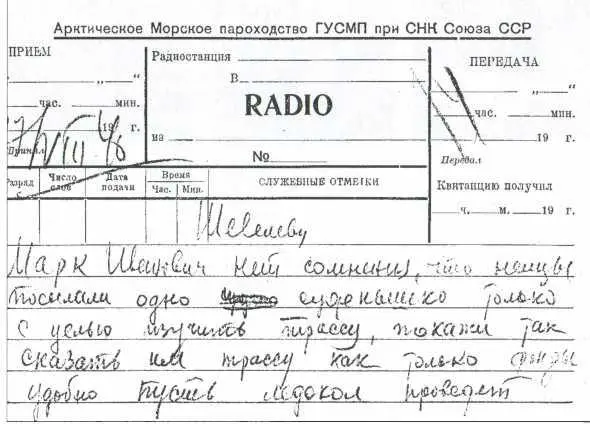 Арктическое Морское пароходство ГУСМП при СНК Союза ССР
ПРИЕМ
„ “
час. мин.
19 г.
Принял
Радиостанция
В
RADIO
из
№
ПЕРЕДАЧА
„ “
час. мин.
19 г.
Передал
Квитанцию получил
ч. м. 19 г.
Разряд Число слов Дата подачи Время Час. Мин. СЛУЖЕБНЫЕ ОТМЕТКИ
Шевелеву
Марк Иванович нет сомнения, что немцы
посылали одно суденышко только
с целью изучить трассу, покажи так
сказать им трассу как только
удобно пусть ледокол проведет